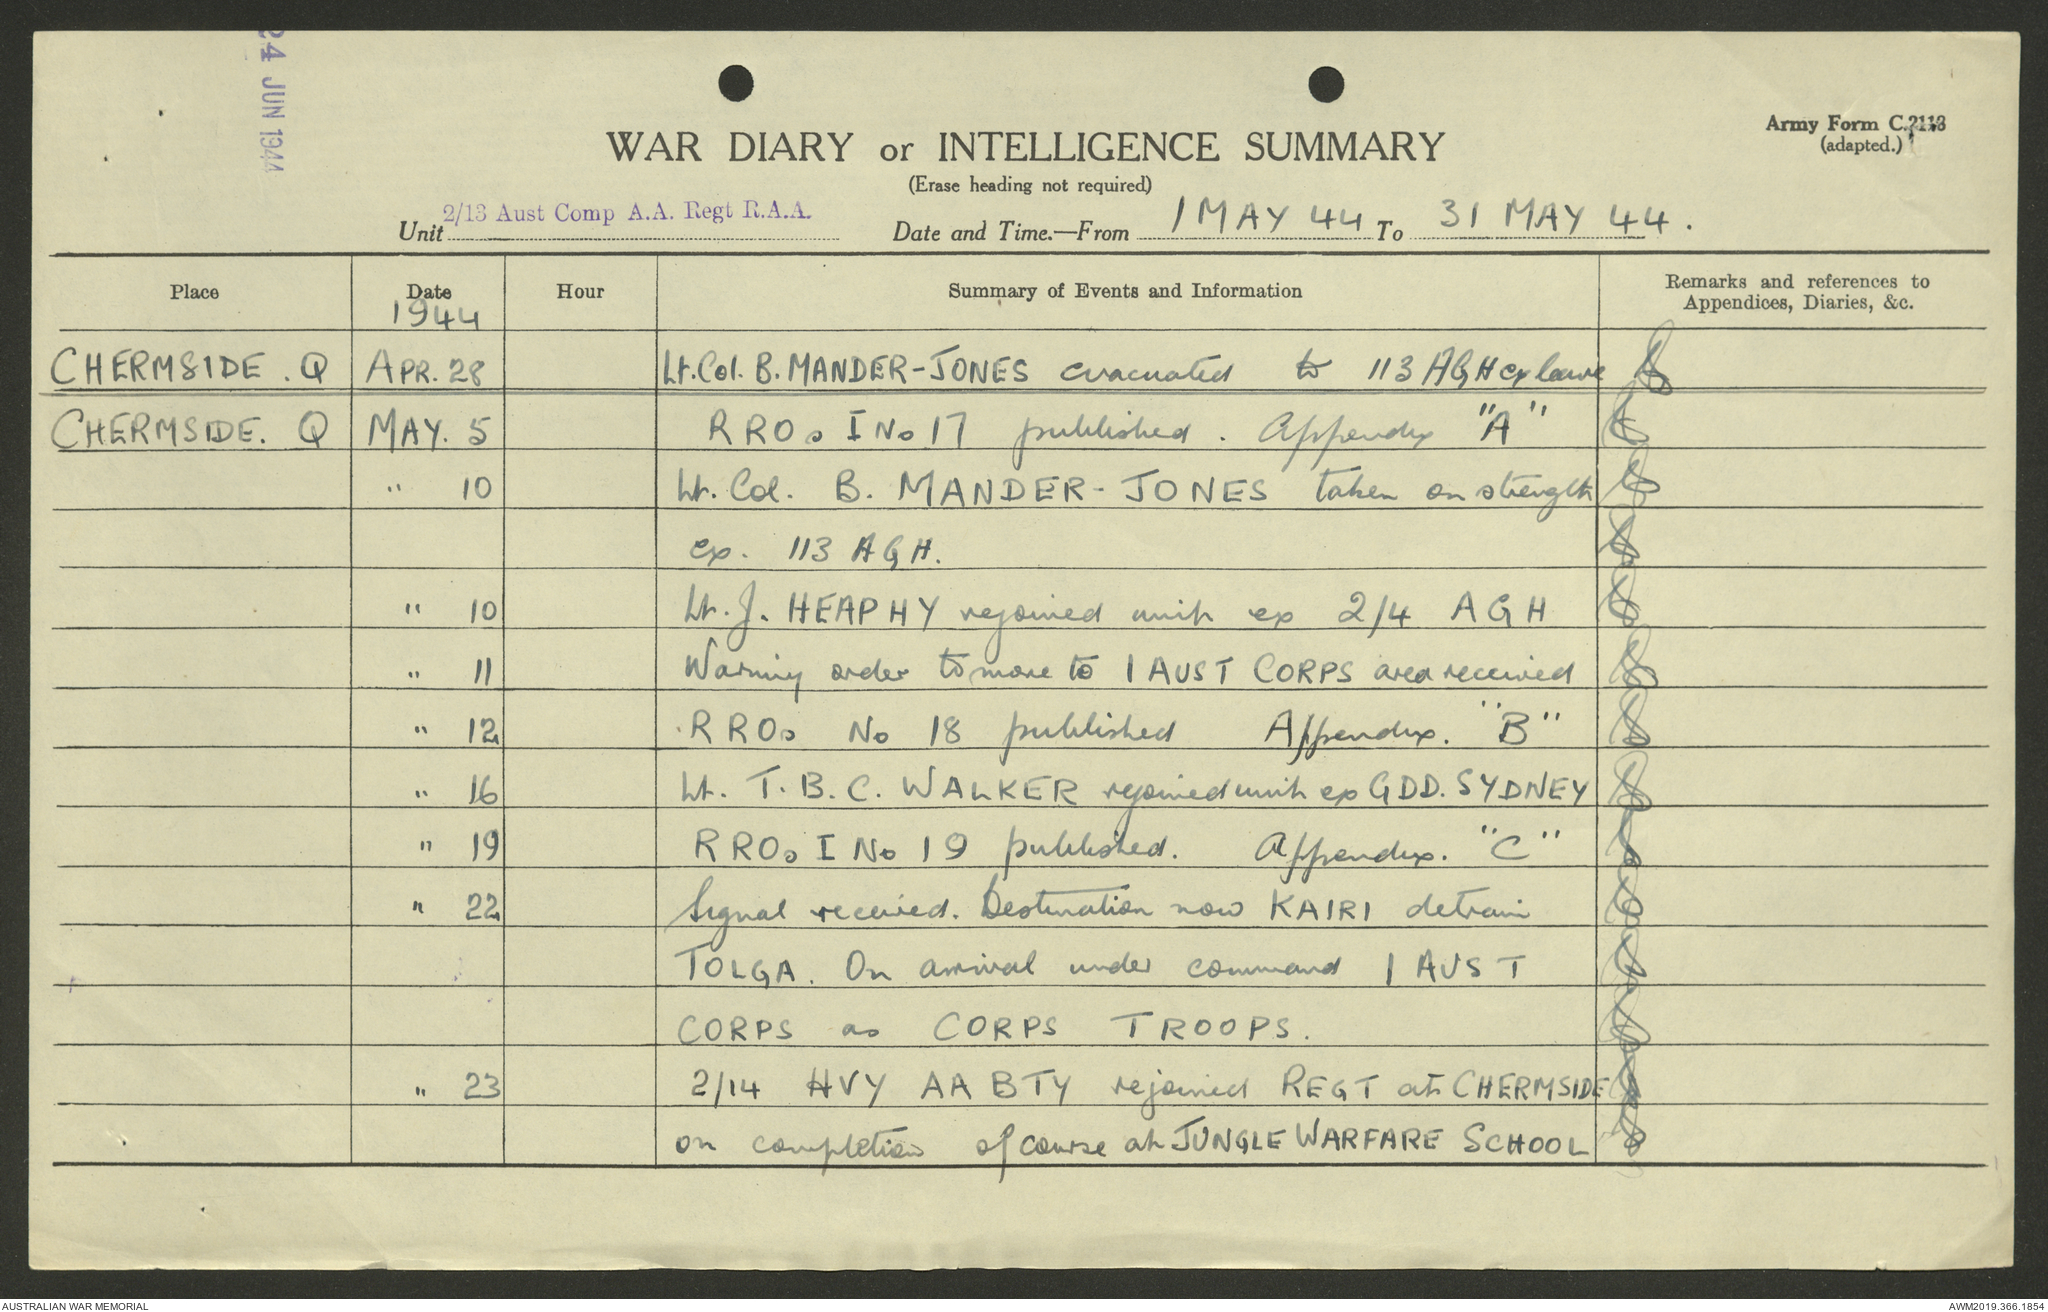 24 JUN 1944
Army Form C.2118
(adapted.)
WAR DIARY or INTELLIGENCE SUMMARY
(Erase heading not required)
Unit 2/13 Aust Comp A.A. Regt R.A.A. Date and Time.—From 1 MAY 44 To 31 MAY 44.
Place Date Hour Summary of Events and Information Remarks and references to Appendices, Diaries, &c.
1944
CHERMSIDE. Q APR. 28 Lt. Col. B. MANDER-JONES evacuated to 113 AGH ex leave
CHERMSIDE. Q MAY. 5 RROs I No 17 published. Appendix "A"
" 10 Lt. Col. B. MANDER-JONES taken on strength
ex. 113 AGH.
" 10 Lt. J. HEAPHY rejoined unit ex 2/4 AGH
" 11 Warning order to move to 1 AUST CORPS area received
" 12 RROs No 18 published Appendix. "B"
" 16 Lt. T. B. C. WALKER rejoined unit ex GDD. SYDNEY
" 19 RROs I No 19 published. Appendix. "C"
" 22 Signal received. Destination now KAIRI detrain
TOLGA. On arrival under command 1 AUST
CORPS as CORPS TROOPS.
" 23 2/14 HVY AA BTY rejoined REGT at CHERMSIDE
on completion of course at JUNGLE WARFARE SCHOOL
AUSTRALIAN WAR MEMORIAL AWM2019.366.1854